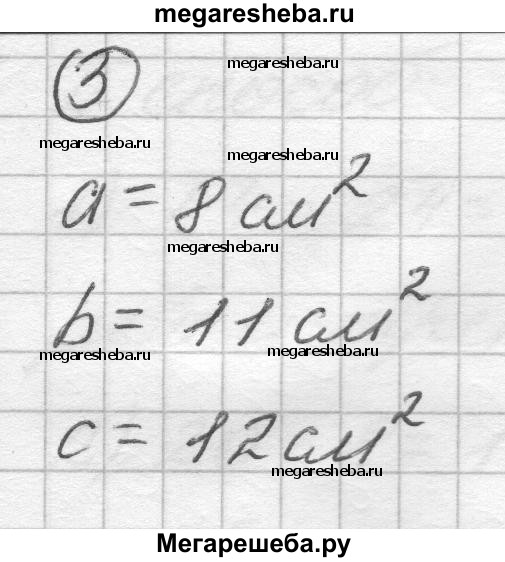 megaresheba.ru
megaresheba.ru
3
megaresheba.ru
megaresheba.ru
a = 8 см²
megaresheba.ru
b = 11 см²
megaresheba.ru
megaresheba.ru
c = 12 см²
megaresheba.ru
Мегарешеба.ру